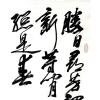 勝日尋芳泗
新等閒
總是春